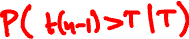 P( t(n-1)>T | T)